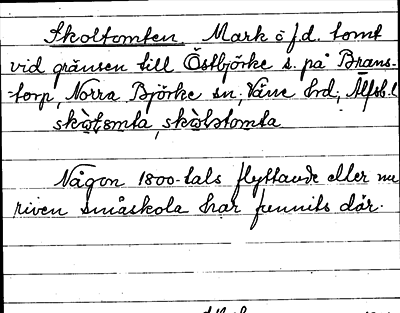 Skoltomten. Mark o f.d. tomt
vid gränsen till Östbjörke s. på Brans-
torp, Norra Björke sn, Väne hd, Älfsb. l
skòltsmta, skòlstomta
Någon 1800-tals flyttande eller nu
riven småskola har funnits där.